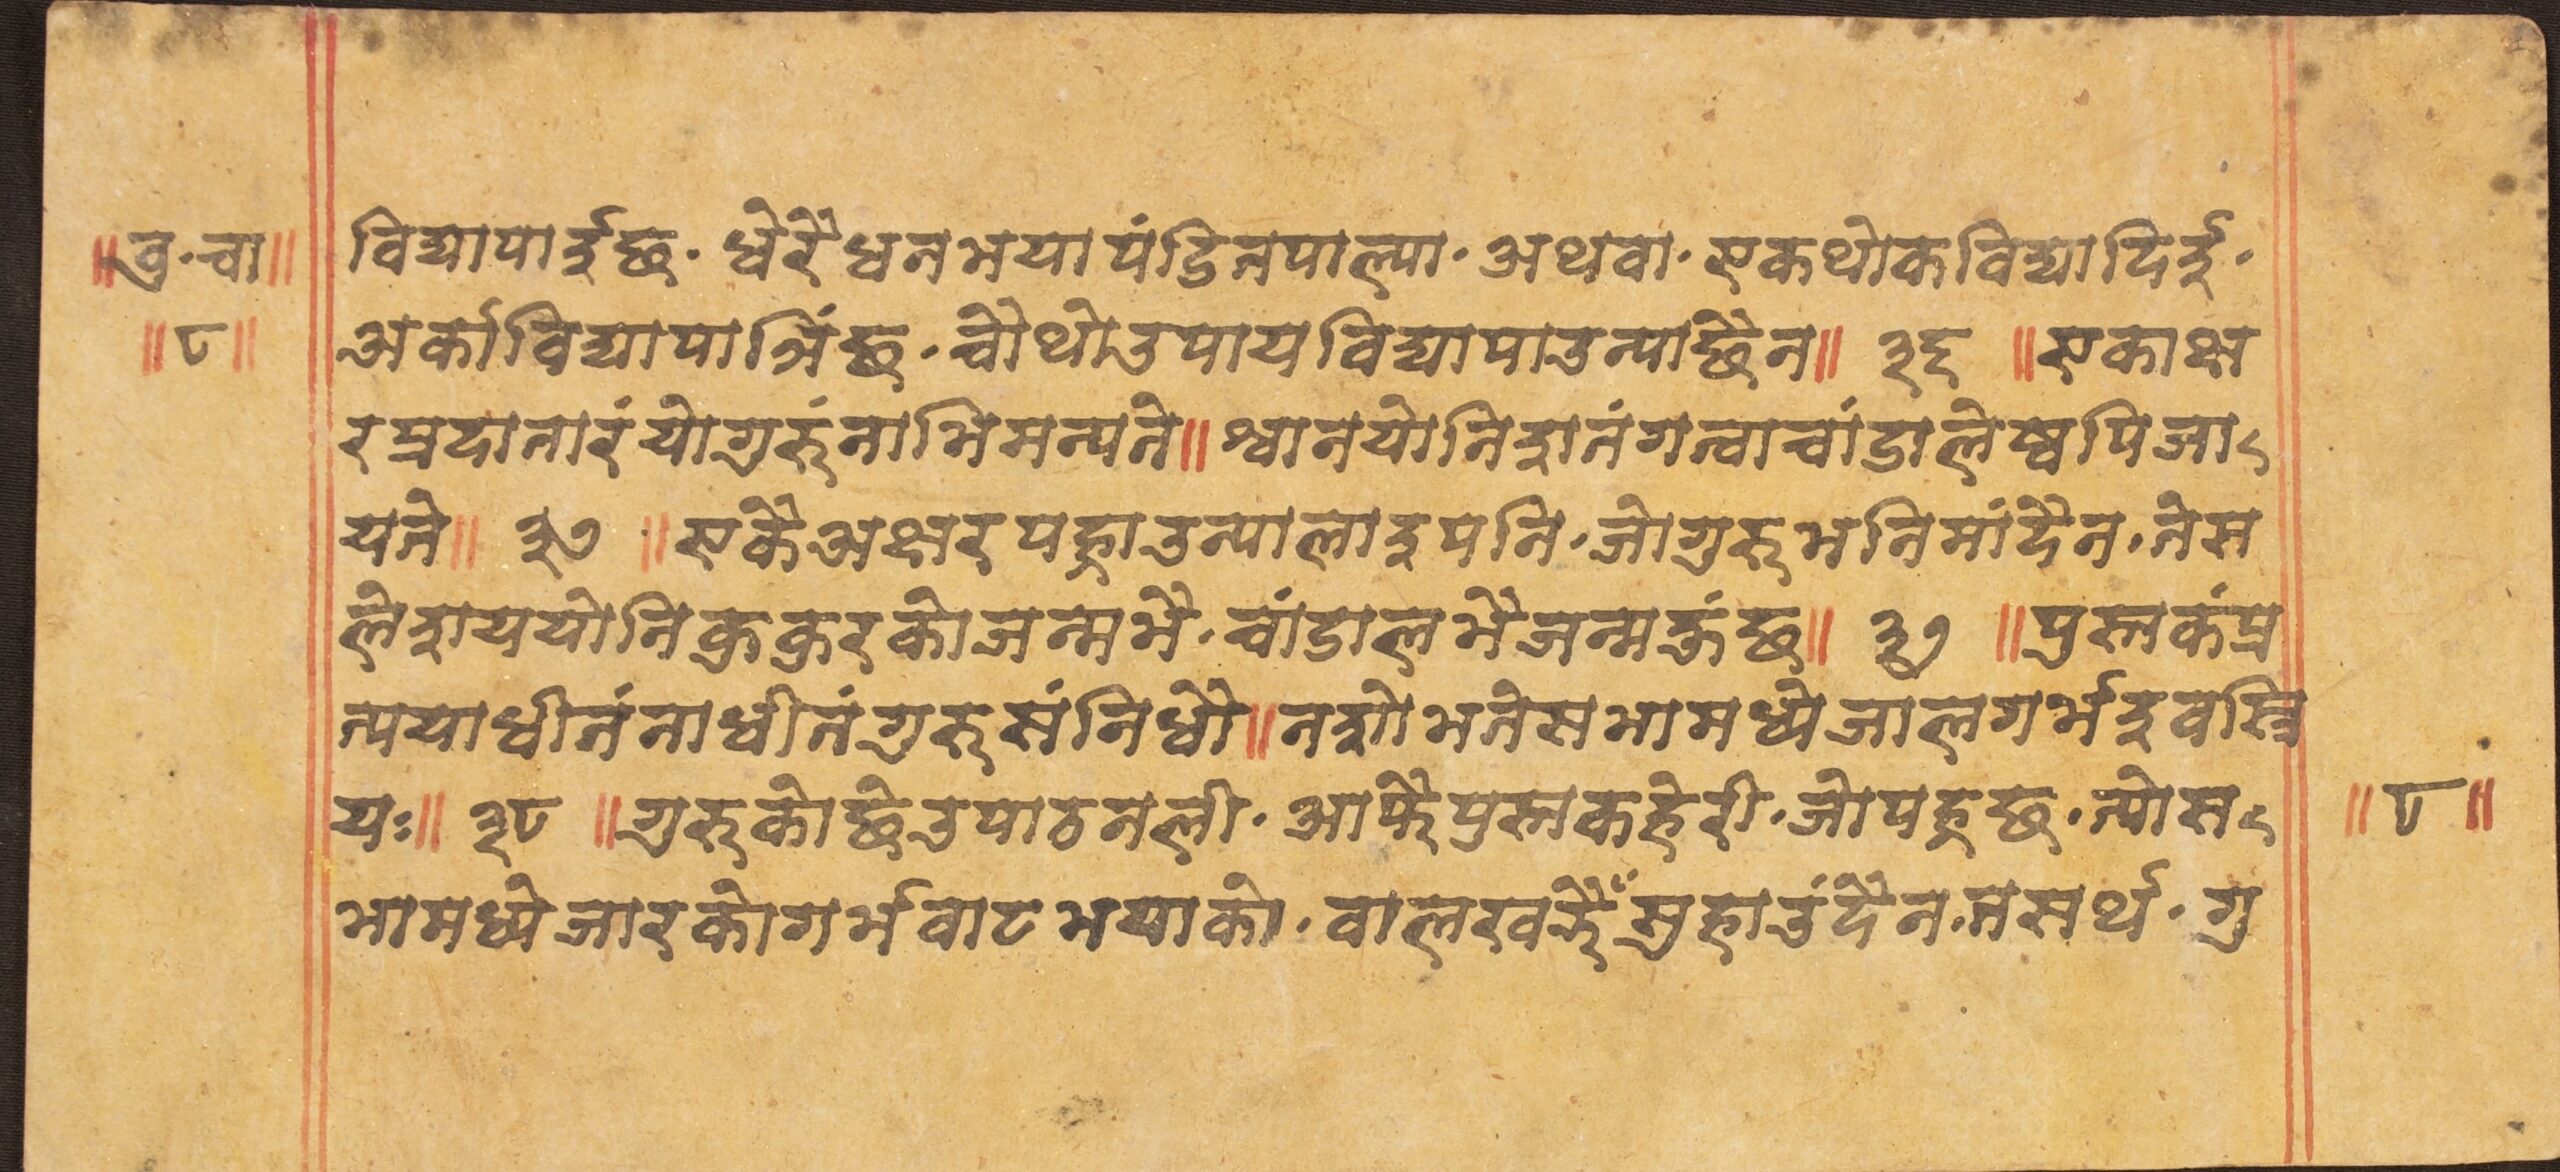 ॥वु·चा॥ विद्यापाईछ· धेरैधनभयापंडितपाल्पा·अथवा·एकथोकविद्यादिई·
॥८॥ अर्काविद्यापान्निंछ·चौथोउपायविद्यापाउन्याछैन॥ ३६ ॥एकाक्ष
रप्रदातारंयोगुरुंनाभिमन्यते॥श्वानयोनिशतंगत्वाचांडालेष्वपिजा
यते॥ ३७ ॥एकैअक्षरपह्राउन्यालाइपनि·जोगुरुभनिमांदैन·तेस
लेशययोनिकुकुरकोजन्मभै·चांडालभैजन्मछंछ॥ ३७ ॥पुस्तकंप्र
त्ययाधीतंनाधीतंगुरुसंनिधौ॥नशोभतेसभामध्येजालगर्भइवस्त्रि
यः॥ ३८ ॥गुरुकोछेउपाठनली·आफैपुस्तकहेरी·जोपह्रछ·त्योस ॥८॥
भामध्येजारकोगर्भवाटभयाको·वालखझैँसुहाउंदैन·तसर्थ·गु